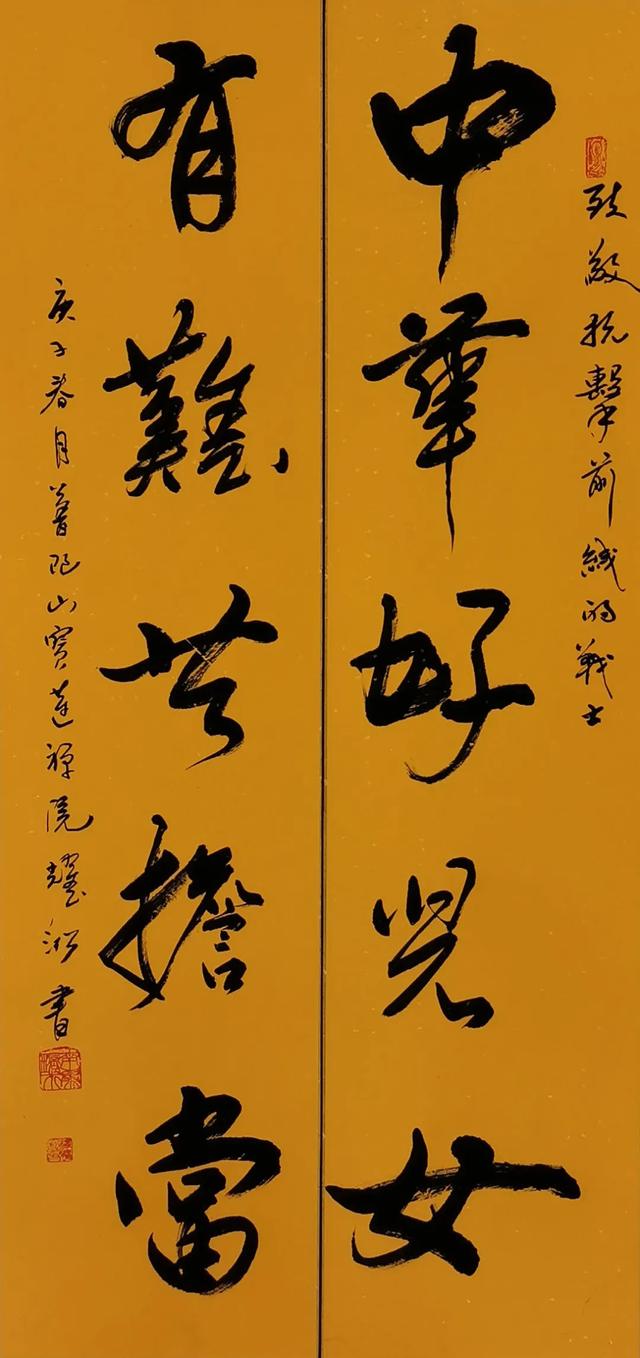 致敬抗擊前綫的戰士
中華好兒女
有難共擔當
庚子春月普陀山寶蓮禪院耀書